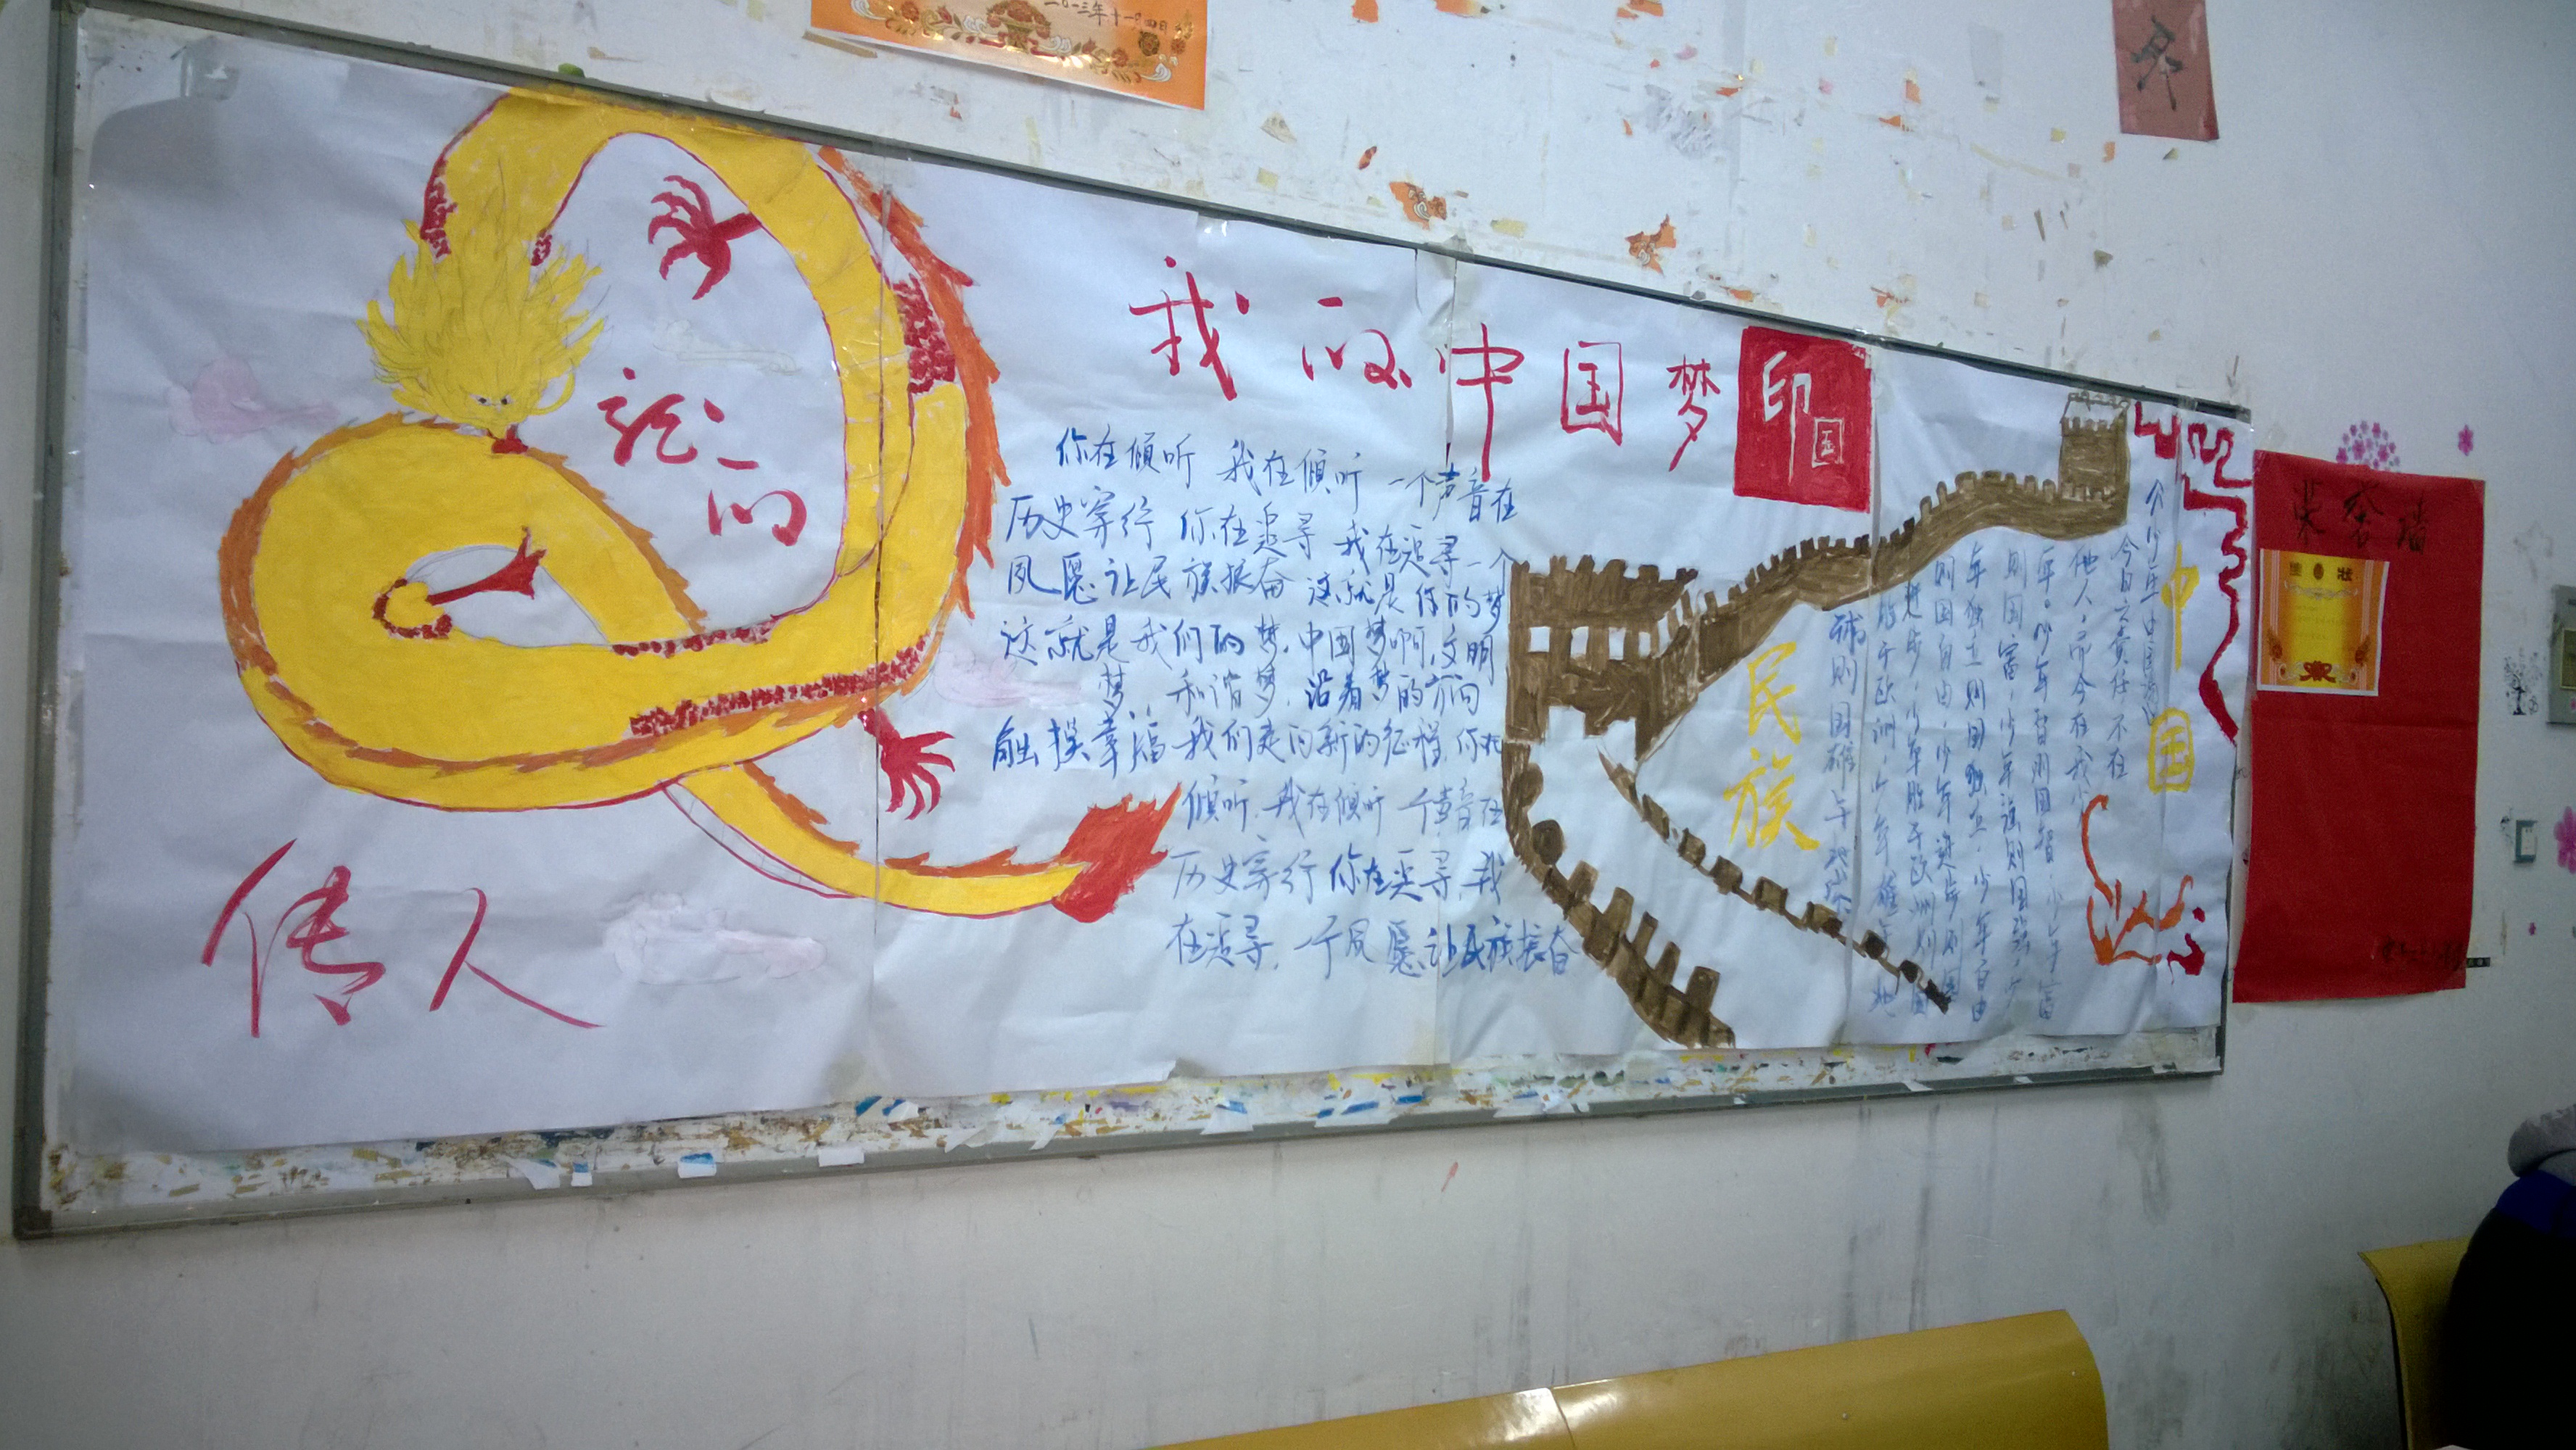 二〇一三年十一月四日
我的中国梦
印
国
龙的
传人
你在倾听 我在倾听 一个声音在
历史穿行 你在追寻 我在追寻 一个
夙愿 让民族振奋 这就是你的梦
这就是我们的梦，中国梦啊，文明
梦，和谐梦，沿着梦的方向
触摸幸福 我们走向新的征程，你在
倾听，我在倾听 一个声音在
历史穿行 你在追寻，我
在追寻，一个夙愿，让民族振奋
民族
中国
今日之责任 不在
他人，而今在我少
年。少年智则国智，少年富
则国富，少年强则国强，少
年独立则国独立，少年自由
则国自由，少年进步则国
进步，少年胜于欧洲则国
胜于欧洲，少年雄于地
球则国雄于地球
荣誉墙
奖状